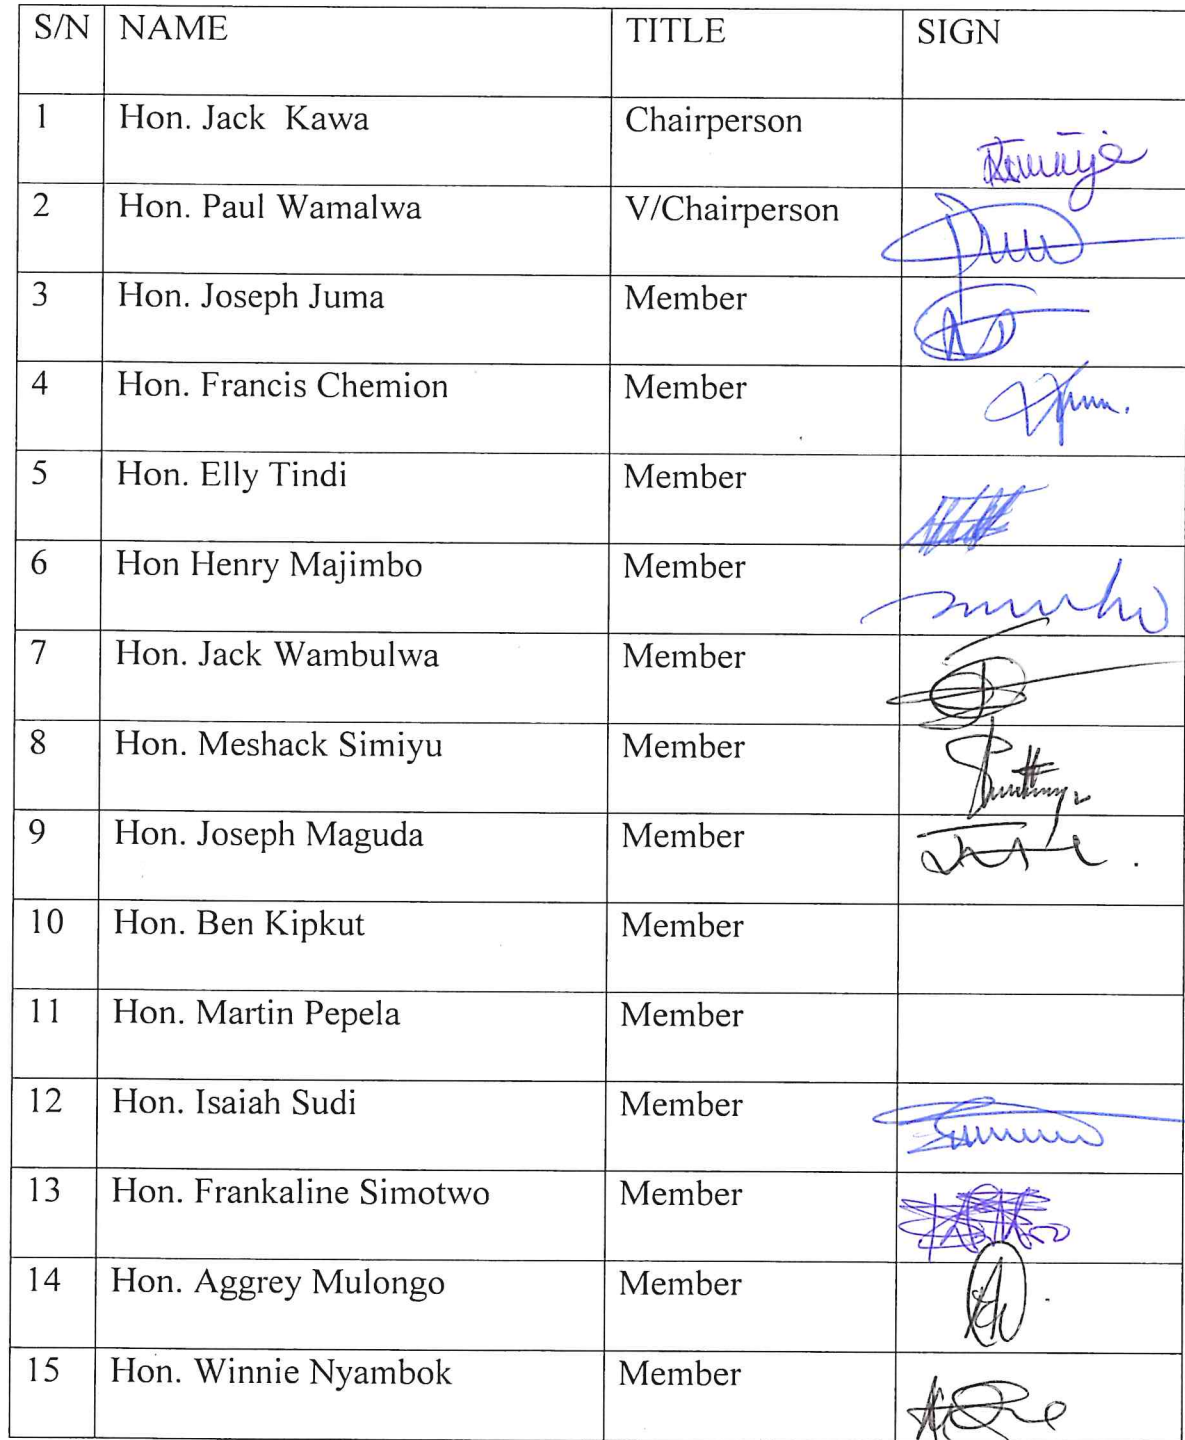 S/N NAME TITLE SIGN
1 Hon. Jack Kawa Chairperson
2 Hon. Paul Wamalwa V/Chairperson
3 Hon. Joseph Juma Member
4 Hon. Francis Chemion Member
5 Hon. Elly Tindi Member
6 Hon Henry Majimbo Member
7 Hon. Jack Wambulwa Member
8 Hon. Meshack Simiyu Member
9 Hon. Joseph Maguda Member
10 Hon. Ben Kipkut Member
11 Hon. Martin Pepela Member
12 Hon. Isaiah Sudi Member
13 Hon. Frankaline Simotwo Member
14 Hon. Aggrey Mulongo Member
15 Hon. Winnie Nyambok Member